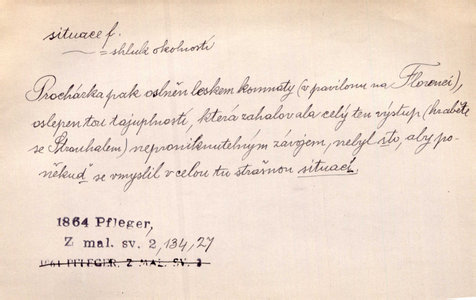 situace f.
= shluk okolností
Procházka pak oslněn leskem komnaty (v pavilonu na Florenci),
oslepen tou tajuplností, která zahalovala celý ten výstup (hraběte
se Strouhalem) neproniknutelným závojem, nebyl sto, aby po-
někud se vmyslil v celou tu strašnou situaci.
1864 Pfleger,
Z mal. sv. 2, 134, 27
1864 PFLEGER, Z MAL. SV. 2